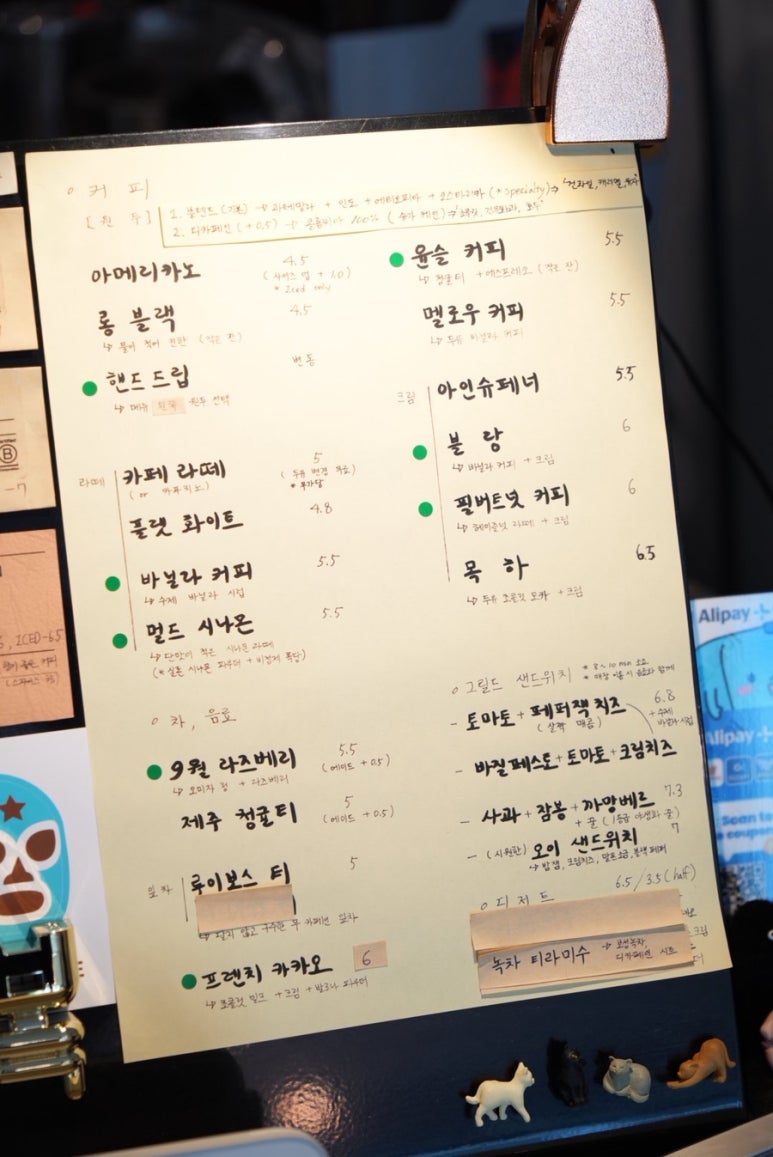 ○ 커 피
[원 두]
1. 블렌드 (기본) → 과테말라 + 인도 + 에티오피아 + 코스타리카 (* specialty) →
2. 디카페인 (+0.5) → 콜롬비아 100% (슈가 케인) →
아메리카노 4.5
(사이즈 업 + 1.0)
* Iced only
롱 블랙 4.5
↳ 물이 적어 진한 (작은 잔)
핸드 드립 변동
↳ 메뉴 원두 선택
라떼
카페 라떼 5
(or 카푸치노) (두유 변경 무료)
플랫 화이트 4.8
바닐라 커피 5.5
↳ 수제 바닐라 시럽
멀드 시나몬 5.5
↳ 단맛이 적은 시나몬 라떼
(* 실론 시나몬 파우더 + 비정제 흑당)
○ 차, 음료
9월 라즈베리 5.5
↳ 오미자 청 + 라즈베리 (에이드 +0.5)
제주 청귤티 5
(에이드 +0.5)
잎차
루이보스 티 5
프렌치 카카오 6
↳ 초콜릿 밀크 + 크림 + 발로나 파우더
윤슬 커피 5.5
↳ 청귤티 + 에스프레소 (작은 잔)
멜로우 커피 5.5
↳ 두유 바닐라 커피
크림
아인슈페너 5.5
블 랑 6
↳ 바닐라 커피 + 크림
필버트넛 커피 6
↳ 헤이즐넛 라떼 + 크림
목 하 6.5
↳ 두유 초콜릿 모카 + 크림
○ 그릴드 샌드위치
* 8~10 min 소요
* 매장 이용 시 음료와 함께
- 토마토 + 페퍼잭 치즈 6.8
(살짝 매콤)
+ 수제 바닐라 시럽
- 바질페스토 + 토마토 + 크림치즈
- 사과 + 잠봉 + 까망베르 7.3
+ 꿀 (1등급 야생화 꿀)
- (시원한) 오이 샌드위치 7
↳ 밤잼, 크림치즈, 말돈소금, 블랙 페퍼
○ 디저트 6.5 / 3.5 (half)
녹차 티라미수 → 보성녹차,
디카페인 시트
ICED-6.5
B
-7
Alipay+
Alipay+
Scan to
coupon